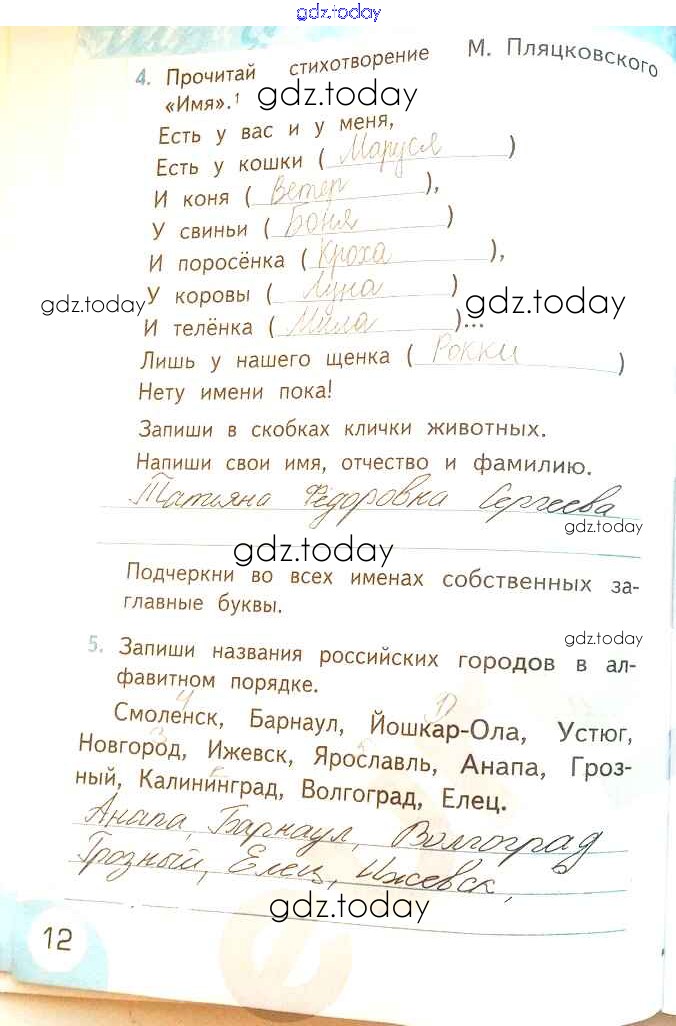 gdz.today
4. Прочитай стихотворение М. Пляцковского
«Имя».¹ gdz.today
Есть у вас и у меня,
Есть у кошки ( Маруся )
И коня ( Ветер ),
У свиньи ( Боня )
И поросёнка ( Кроха ),
gdz.today У коровы ( Луна ) gdz.today
И телёнка ( Мила )...
Лишь у нашего щенка ( Рокки )
Нету имени пока!
Запиши в скобках клички животных.
Напиши свои имя, отчество и фамилию.
Татьяна Фёдоровна Сергеева
gdz.today
gdz.today
Подчеркни во всех именах собственных за-
главные буквы.
gdz.today
5. Запиши названия российских городов в ал-
фавитном порядке.
Смоленск, Барнаул, Йошкар-Ола, Устюг,
Новгород, Ижевск, Ярославль, Анапа, Гроз-
ный, Калининград, Волгоград, Елец.
Анапа, Барнаул, Волгоград
Грозный, Елец, Ижевск,
gdz.today
12